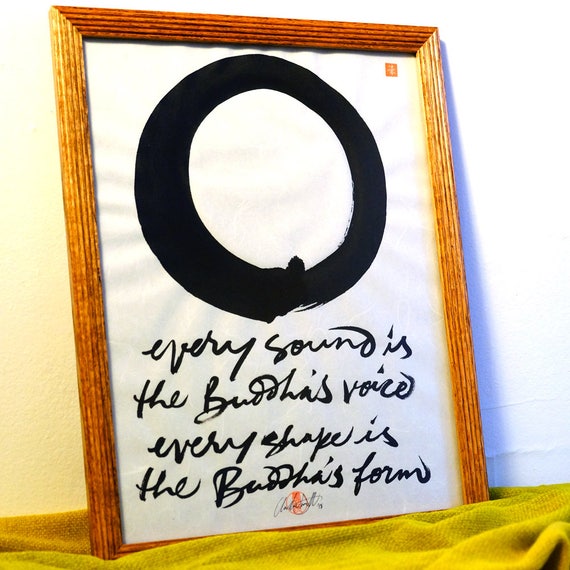 every sound is
the Buddha's voice
every shape is
the Buddha's form